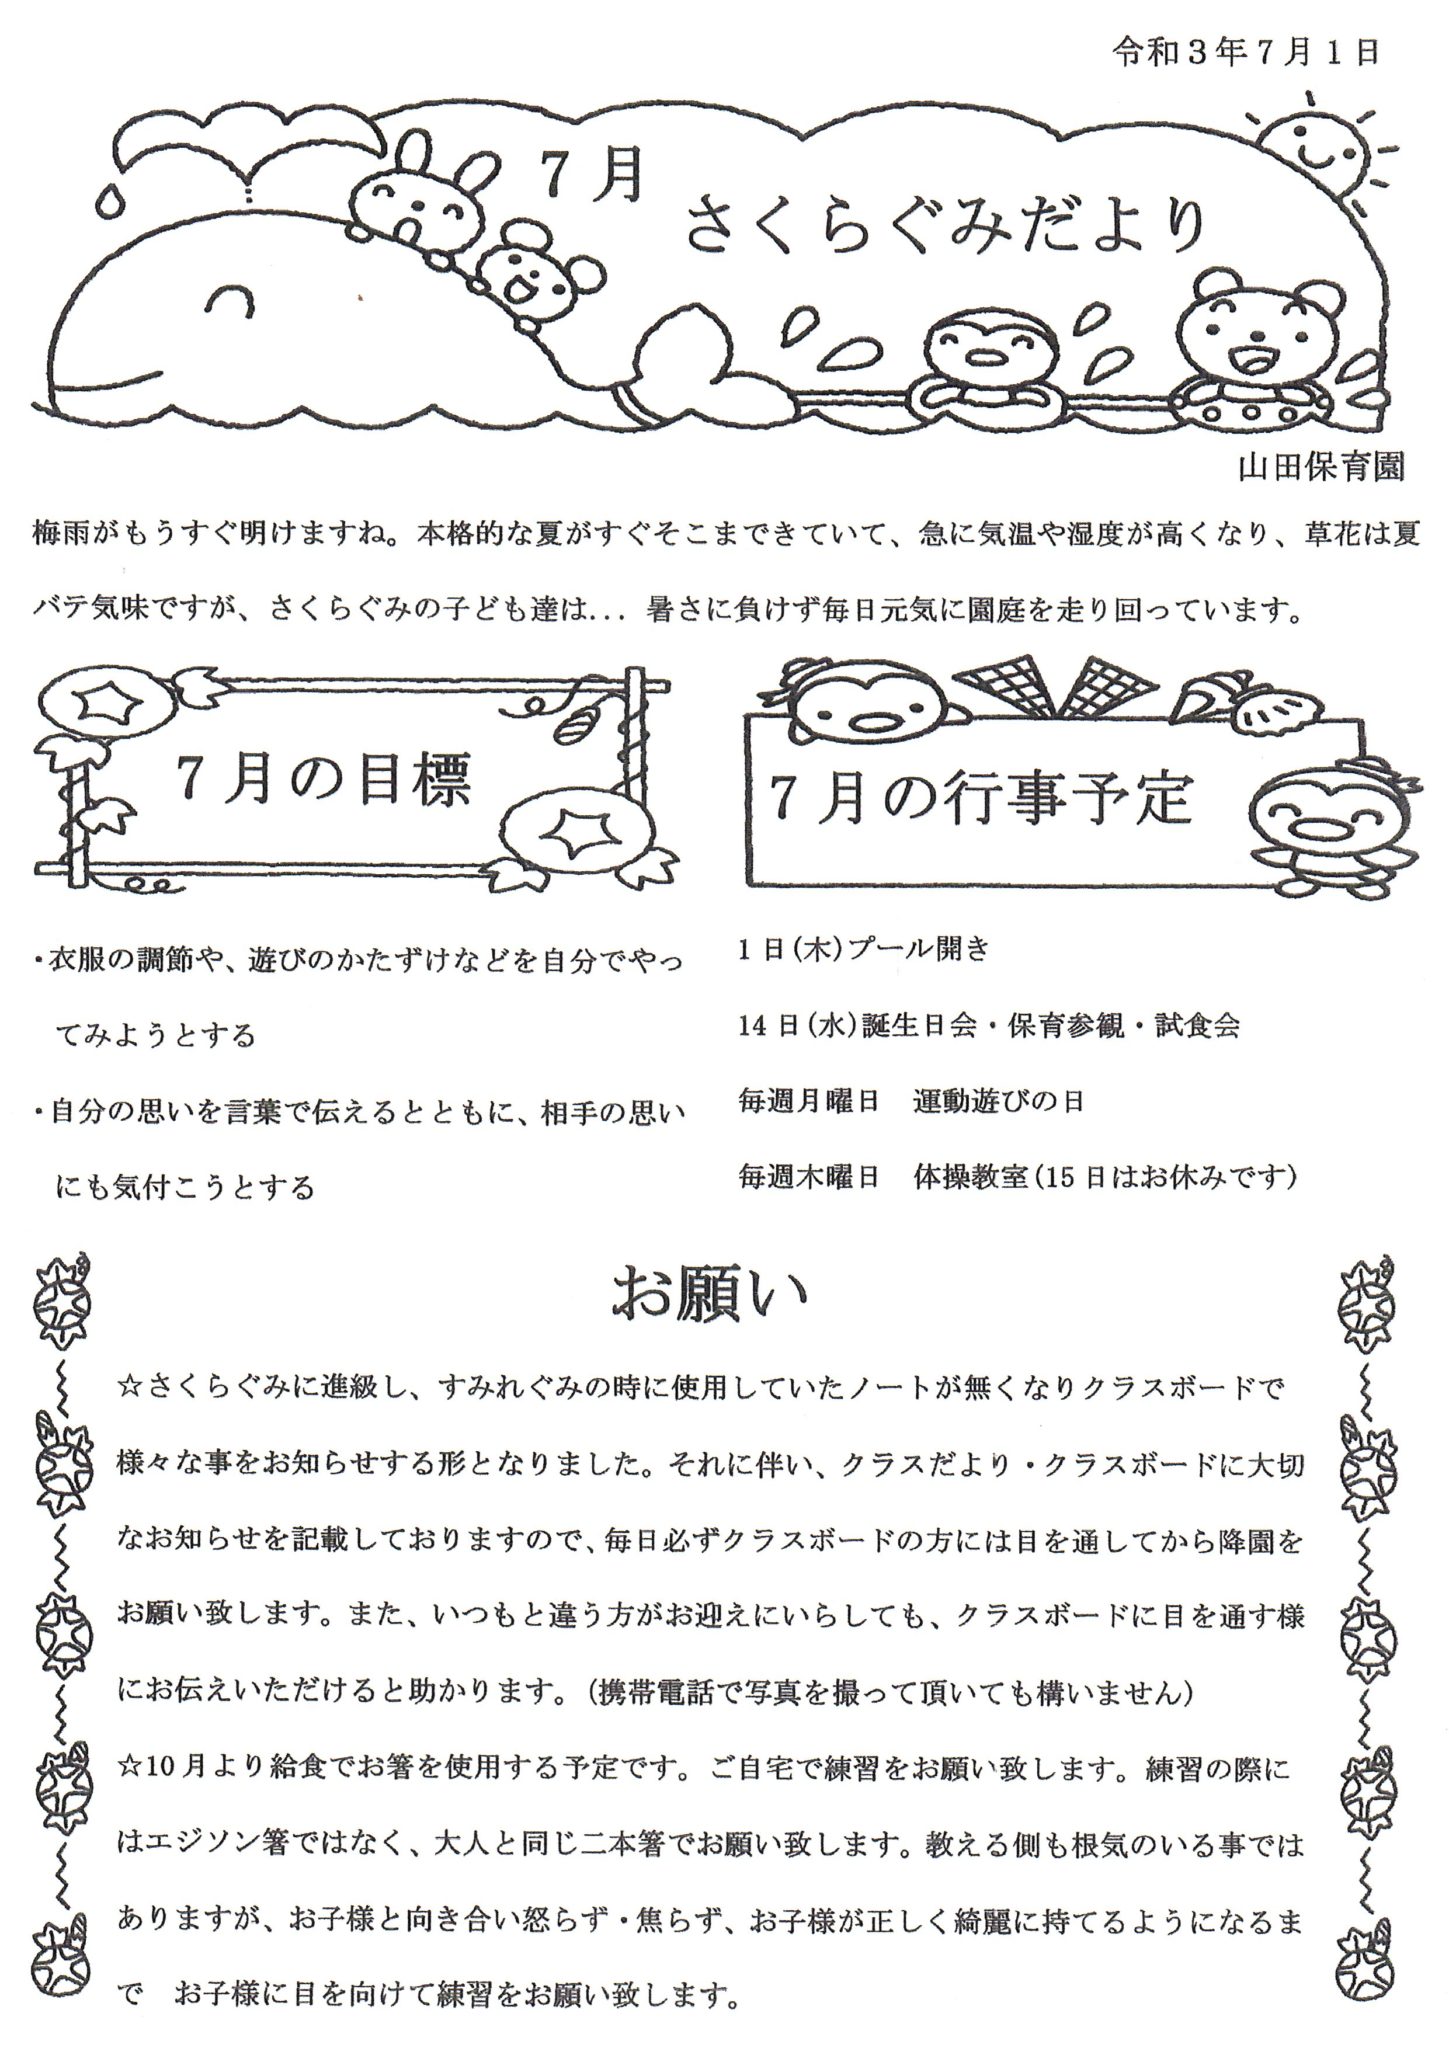 令和3年7月1日
7月
さくらぐみだより
山田保育園
梅雨がもうすぐ明けますね。本格的な夏がすぐそこまできていて、急に気温や湿度が高くなり、草花は夏
バテ気味ですが、さくらぐみの子ども達は... 暑さに負けず毎日元気に園庭を走り回っています。
7月の目標
・衣服の調節や、遊びのかたずけなどを自分でやっ
てみようとする
・自分の思いを言葉で伝えるとともに、相手の思い
にも気付こうとする
7月の行事予定
1日(木)プール開き
14日(水)誕生日会・保育参観・試食会
毎週月曜日　運動遊びの日
毎週木曜日　体操教室(15日はお休みです)
お願い
☆さくらぐみに進級し、すみれぐみの時に使用していたノートが無くなりクラスボードで
様々な事をお知らせする形となりました。それに伴い、クラスだより・クラスボードに大切
なお知らせを記載しておりますので、毎日必ずクラスボードの方には目を通してから降園を
お願い致します。また、いつもと違う方がお迎えにいらしても、クラスボードに目を通す様
にお伝えいただけると助かります。(携帯電話で写真を撮って頂いても構いません)
☆10月より給食でお箸を使用する予定です。ご自宅で練習をお願い致します。練習の際に
はエジソン箸ではなく、大人と同じ二本箸でお願い致します。教える側も根気のいる事では
ありますが、お子様と向き合い怒らず・焦らず、お子様が正しく綺麗に持てるようになるま
で　お子様に目を向けて練習をお願い致します。